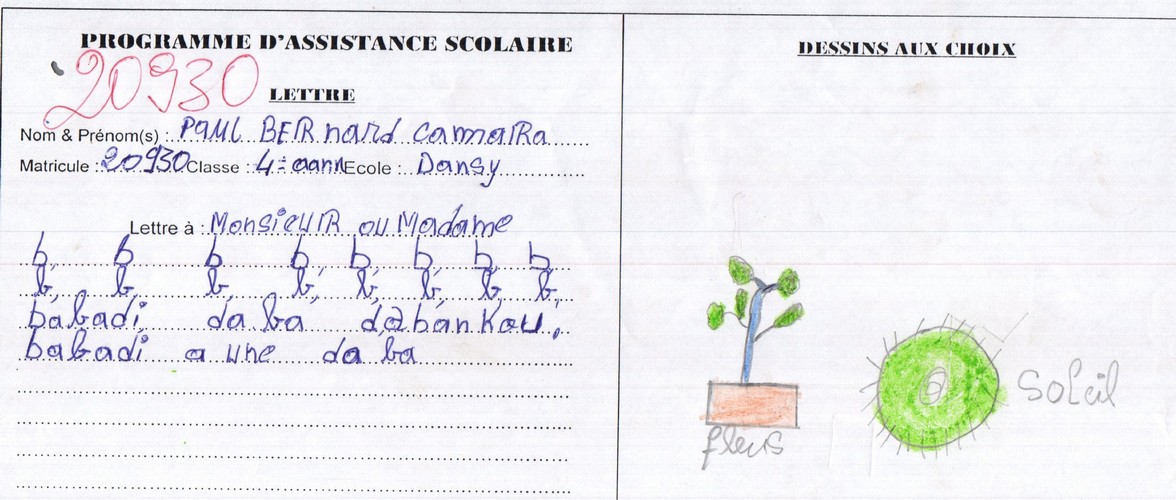 PROGRAMME D'ASSISTANCE SCOLAIRE
20930
LETTRE
Nom & Prénom(s) : PAUL BERnard camaRa
Matricule : 20930 Classe : 4 = aann Ecole : Dansy
Lettre à : MonsieuR ou Madame
b, b b b, b, b, b, b,
b, b, b b, b, b, b, b,
babadi da ba dabankou,
babadi a une da ba
DESSINS AUX CHOIX
fleus
Soleil